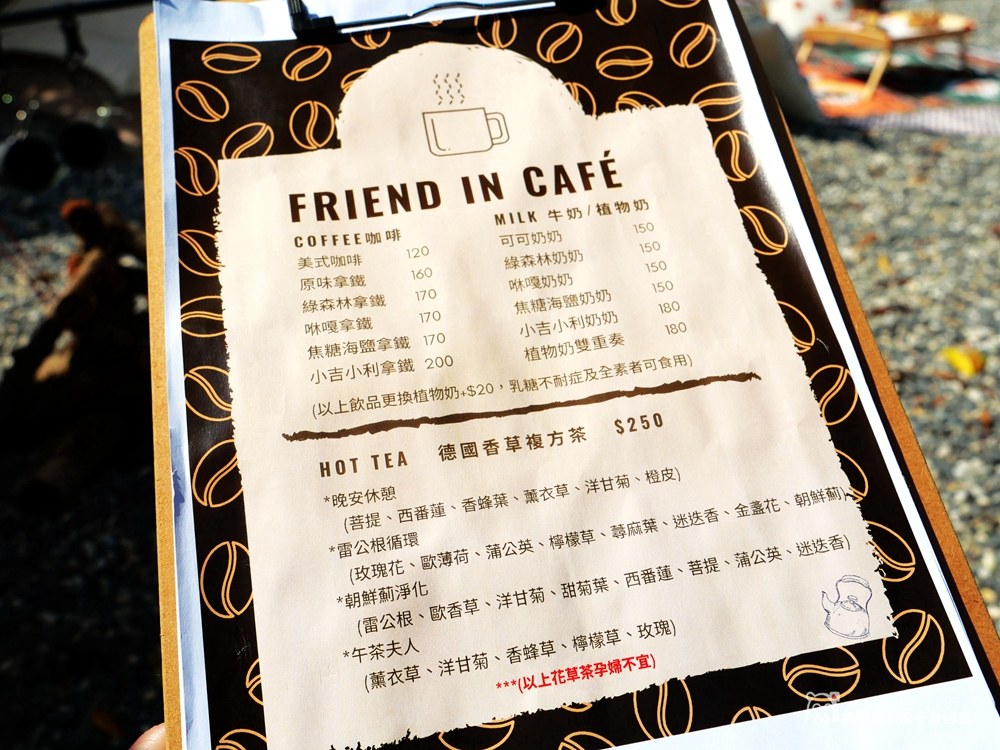 FRIEND IN CAFÉ
COFFEE咖啡
美式咖啡 120
原味拿鐵 160
綠森林拿鐵 170
咻嘎拿鐵 170
焦糖海鹽拿鐵 170
小吉小利拿鐵 200
MILK 牛奶/植物奶
可可奶奶 150
綠森林奶奶 150
咻嘎奶奶 150
焦糖海鹽奶奶 150
小吉小利奶奶 180
植物奶雙重奏 180
(以上飲品更換植物奶+$20，乳糖不耐症及全素者可食用)
HOT TEA 德國香草複方茶 $250
*晚安休憩
(菩提、西番蓮、香蜂葉、薰衣草、洋甘菊、橙皮)
*雷公根循環
(玫瑰花、歐薄荷、蒲公英、檸檬草、蕁麻葉、迷迭香、金盞花、朝鮮薊)
*朝鮮薊淨化
(雷公根、歐香草、洋甘菊、甜菊葉、西番蓮、菩提、蒲公英、迷迭香)
*午茶夫人
(薰衣草、洋甘菊、香蜂草、檸檬草、玫瑰)
***(以上花草茶孕婦不宜)